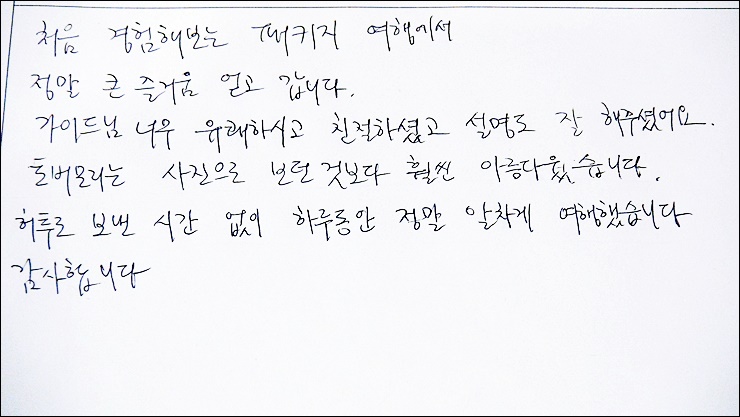 처음 경험해보는 패키지 여행에서
정말 큰 즐거움 얻고 갑니다.
가이드님 너무 유쾌하시고 친절하셨고 설명도 잘 해주셨어요.
토버모리는 사진으로 보던 것보다 훨씬 아름다웠습니다.
허투로 보낸 시간 없이 하루동안 정말 알차게 여행했습니다
감사합니다